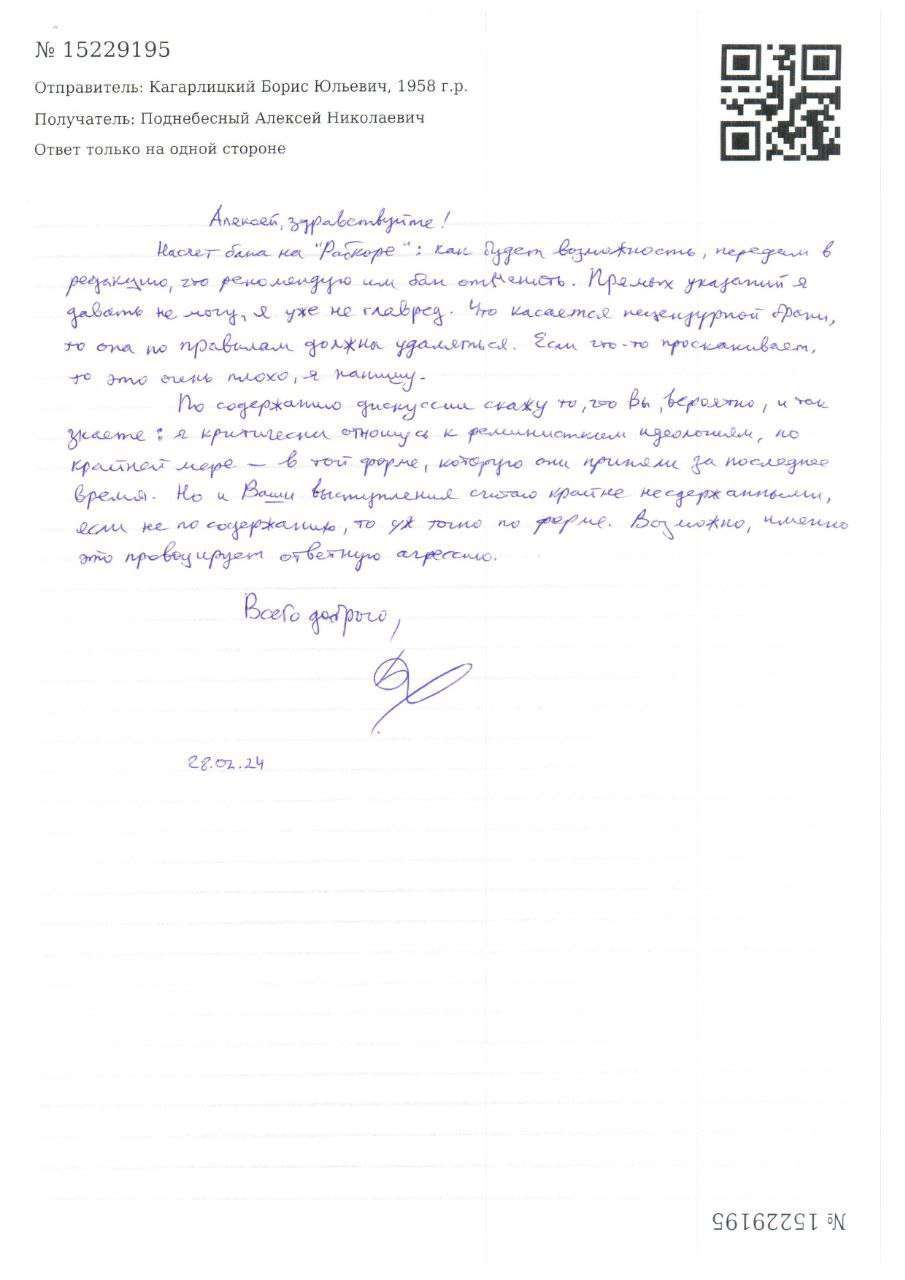 № 15229195
Отправитель: Кагарлицкий Борис Юльевич, 1958 г.р.
Получатель: Поднебесный Алексей Николаевич
Ответ только на одной стороне
Алексей, здравствуйте!
Насчет бана на "Рабкоре": как будет возможность, передам в
редакцию, что рекомендую им бан отменить. Прямых указаний я
давать не могу, я уже не главред. Что касается нецензурной брани,
то она по правилам должна удаляться. Если что-то проскакивает,
то это очень плохо, я напишу.
По содержанию дискуссии скажу то, что Вы, вероятно, и так
знаете: я критически отношусь к феминистским идеологиям, по
крайней мере – в той форме, которую они приняли за последнее
время. Но и Ваши выступления считаю крайне несдержанными,
если не по содержанию, то уж точно по форме. Возможно, именно
это провоцирует ответную агрессию.
Всего доброго,
28.02.24
№ 15229195